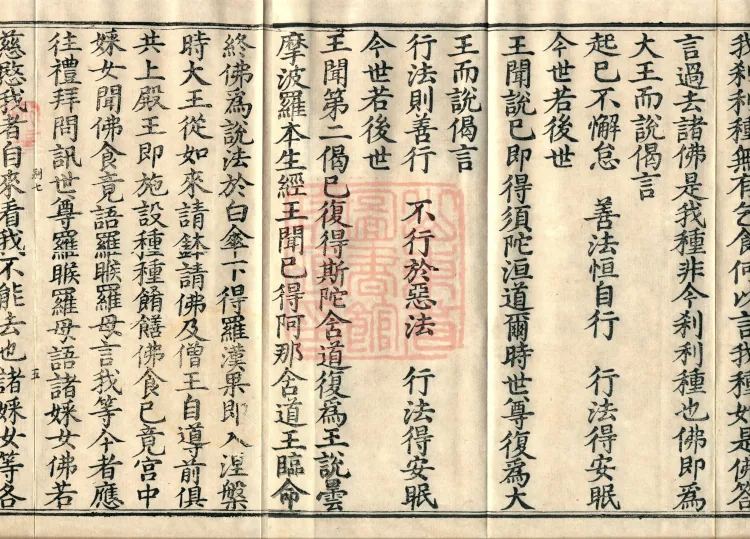 我刹利種無有乞食何以言我種如是佛答
言過去諸佛是我種非今刹利種也佛即爲
大王而說偈言
起已不懈怠 善法恒自行 行法得安眠
今世若後世
王聞說已即得須陀洹道爾時世尊復爲大
王而說偈言
行法則善行 不行於惡法 行法得安眠
今世若後世
王聞第二偈已復得斯陀含道復爲王說曇
摩波羅本生經王聞已得阿那含道王臨命
終佛爲說法於白傘下得羅漢果即入涅槃
時大王從如來請鉢請佛及僧王自導前俱
共上殿王即施設種種餚饍佛食已竟宮中
婇女聞佛食竟語羅睺羅母言我等今者應
往禮拜問訊世尊羅睺羅母語諸婇女佛若
七 五
慈愍我者自來看我不能去也諸婇女等各